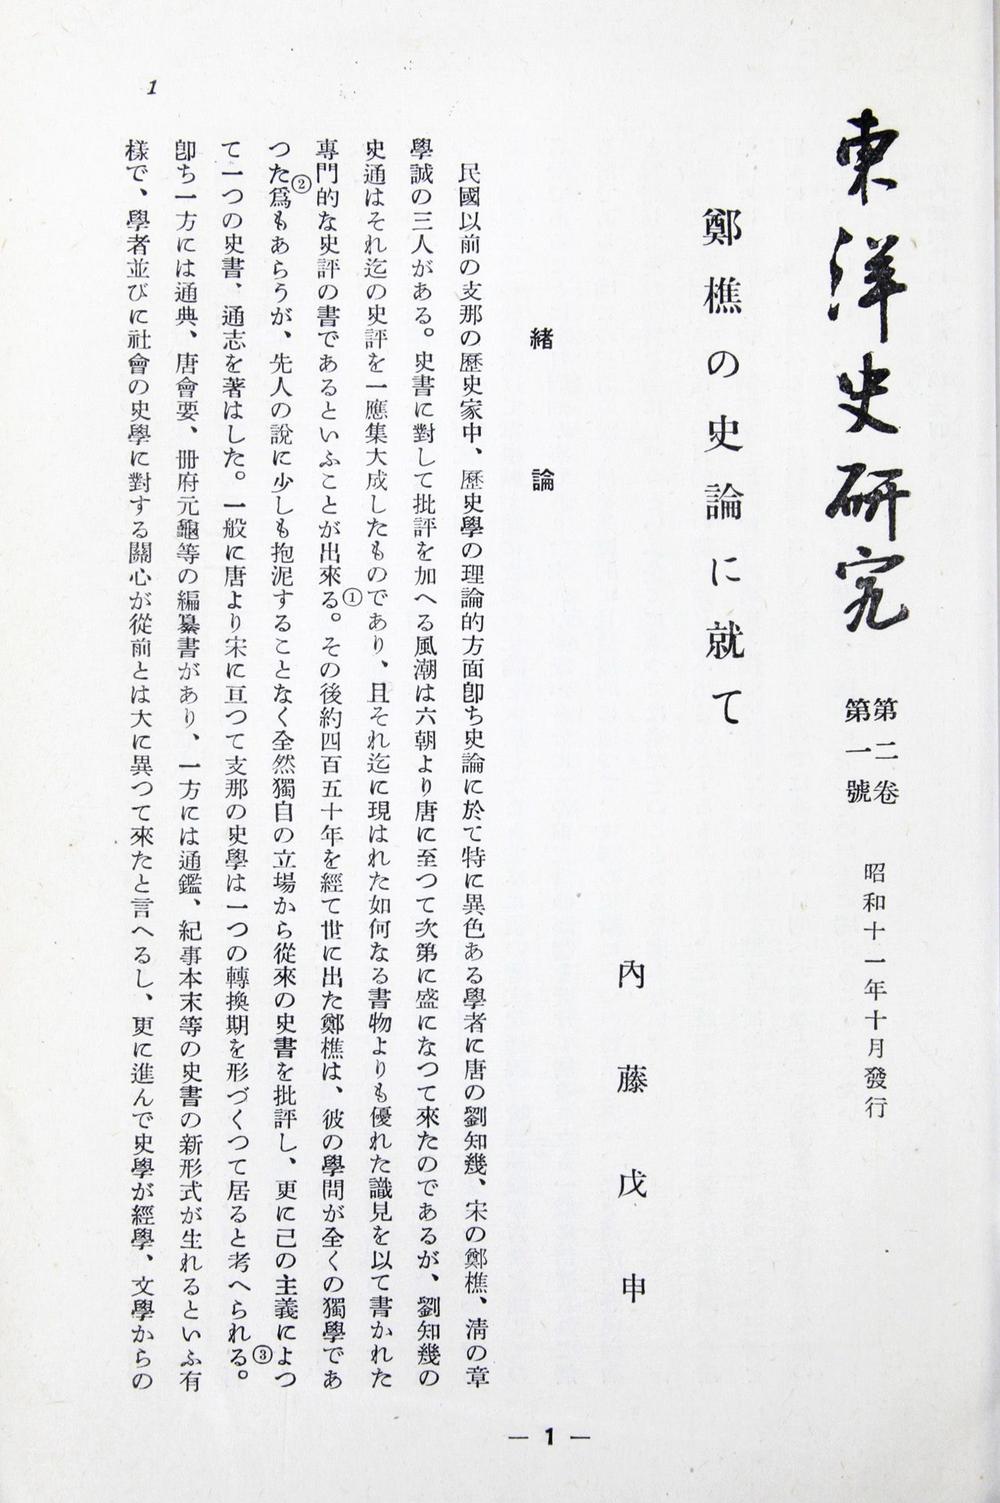 東洋史研究
第二卷
第一號
昭和十一年十月發行
鄭樵の史論に就て
內藤戊申
緖論
民國以前の支那の歷史家中、歷史學の理論的方面卽ち史論に於て特に異色ある學者に唐の劉知幾、宋の鄭樵、淸の章
學誠の三人がある。史書に對して批評を加へる風潮は六朝より唐に至つて次第に盛になつて來たのであるが、劉知幾の
史通はそれ迄の史評を一應集大成したものであり、且それ迄に現はれた如何なる書物よりも優れた識見を以て書かれた
專門的な史評の書であるといふことが出來る。①その後約四百五十年を經て世に出た鄭樵は、彼の學問が全くの獨學であ
つた爲②もあらうが、先人の說に少しも抱泥することなく全然獨自の立場から從來の史書を批評し、更に己の主義によつ
て一つの史書、通志を著はした。一般に唐より宋に亙つて支那の史學は一つの轉換期を形づくつて居ると考へられる。③
卽ち一方には通典、唐會要、冊府元龜等の編纂書があり、一方には通鑑、紀事本末等の史書の新形式が生れるといふ有
樣で、學者並びに社會の史學に對する關心が從前とは大に異つて來たと言へるし、更に進んで史學が經學、文學からの
1
— 1 —